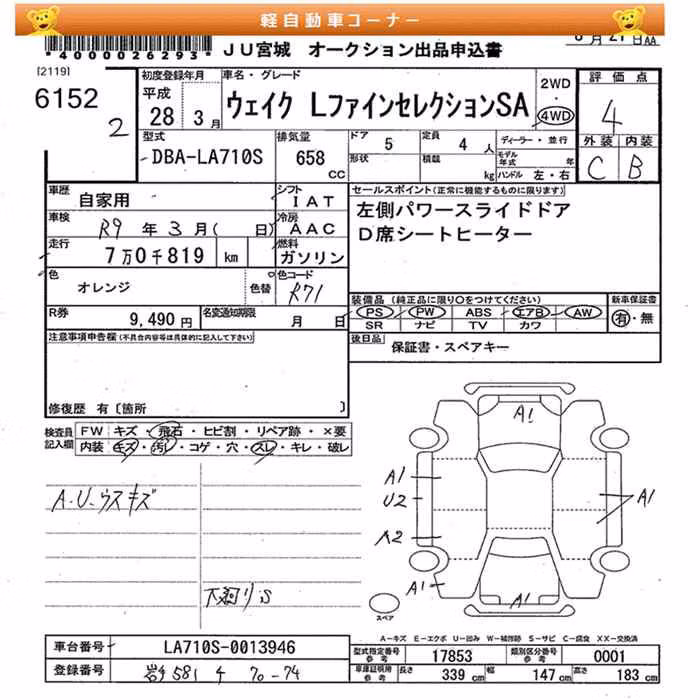 軽自動車コーナー
*4000026293*
JU宮城 オークション出品申込書
8月21日AA
[2119]
6152
2
初度登録年月
平成
28 3月
車名・グレード
ウェイク LファインセレクションSA
2WD
・
4WD
評価点
4
外装 内装
C B
型式
DBA-LA710S
排気量
658
CC
ドア 5
形状
定員 4 人
積載 kg
ディーラー・並行
モデル年式 年
ハンドル 左・右
車歴
自家用
シフト
IAT
車検
R9 年 3 月( 日)
冷房
AAC
走行
7万0千819 km
燃料
ガソリン
色
オレンジ
色替
色コード
R71
R券
9,490 円
名変通知期限
月 日
セールスポイント(正常に機能するものに限ります)
左側パワースライドドア
D席シートヒーター
装備品 (純正品に限り○をつけてください)
PS PW ABS エアB AW
SR ナビ TV カワ
新車保証書
有・無
後日品
保証書・スペアキー
注意事項申告欄(不具合内容等は具体的に記入して下さい)
修復歴 有〔箇所 〕
検査員記入欄
FW キズ・飛石・ヒビ割・リペア跡・×要
内装 キズ・汚レ・コゲ・穴・スレ・キレ・破レ
A.U.ウスキズ
下廻りS
A1
A1
U2
A1
A2
A1
スペア
A-キズ E-エクボ U-凹み W-補修跡 S-サビ C-腐食 XX-交換済
車台番号
LA710S-0013946
登録番号
岩手 581 イ 70-74
型式指定番号 参考
17853
類別区分番号 参考
0001
車庫証明用 参考
長さ 339 cm
幅 147 cm
高さ 183 cm